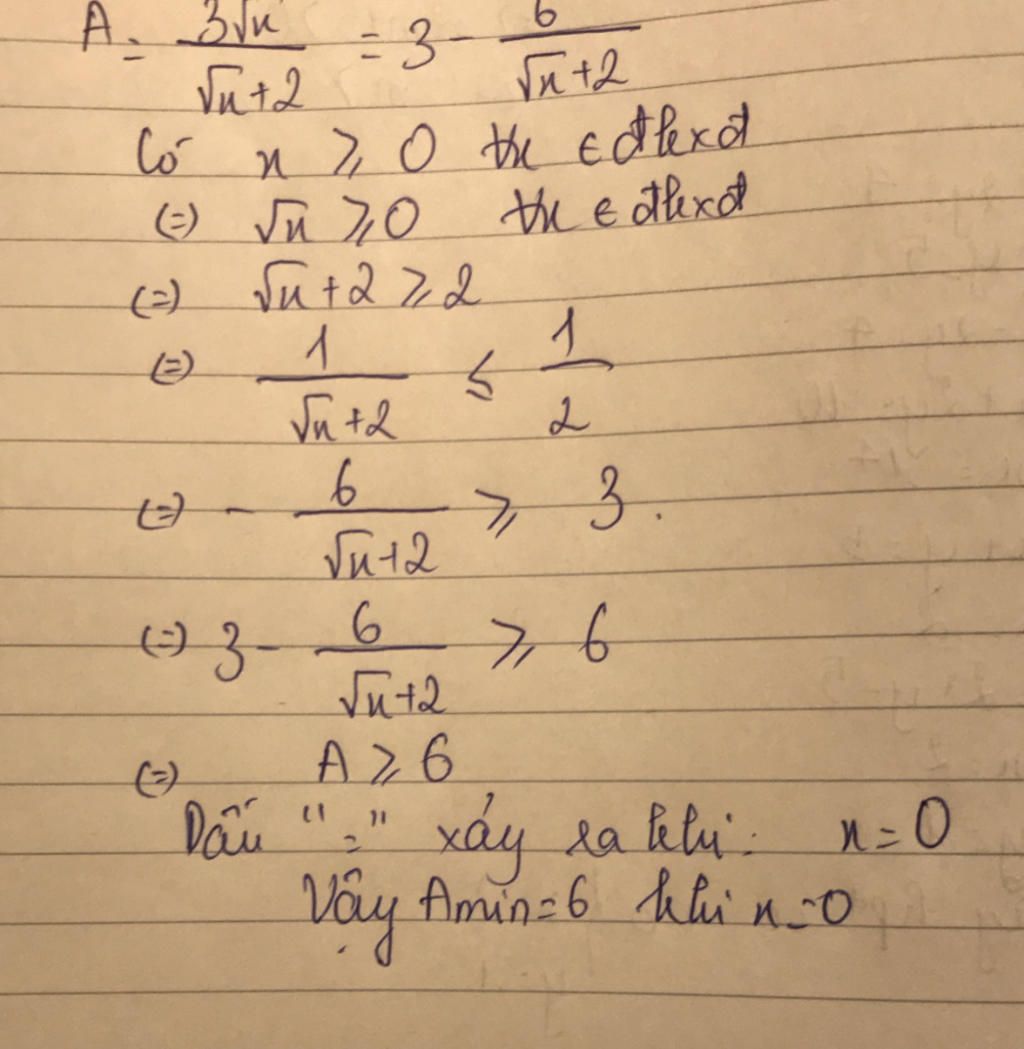 A = 3√x / √x+2 = 3 - 6 / √x+2
Có x ⩾ 0 ∀x ∈ đkxđ
(=) √x ⩾ 0 ∀x ∈ đkxđ
(=) √x + 2 ⩾ 2
(=) 1 / √x+2 ⩽ 1 / 2
(=) - 6 / √x+2 ⩾ 3.
(=) 3 - 6 / √x+2 ⩾ 6
(=) A ⩾ 6
Dấu "=" xảy ra khi: x = 0
Vậy Amin = 6 khi x = 0